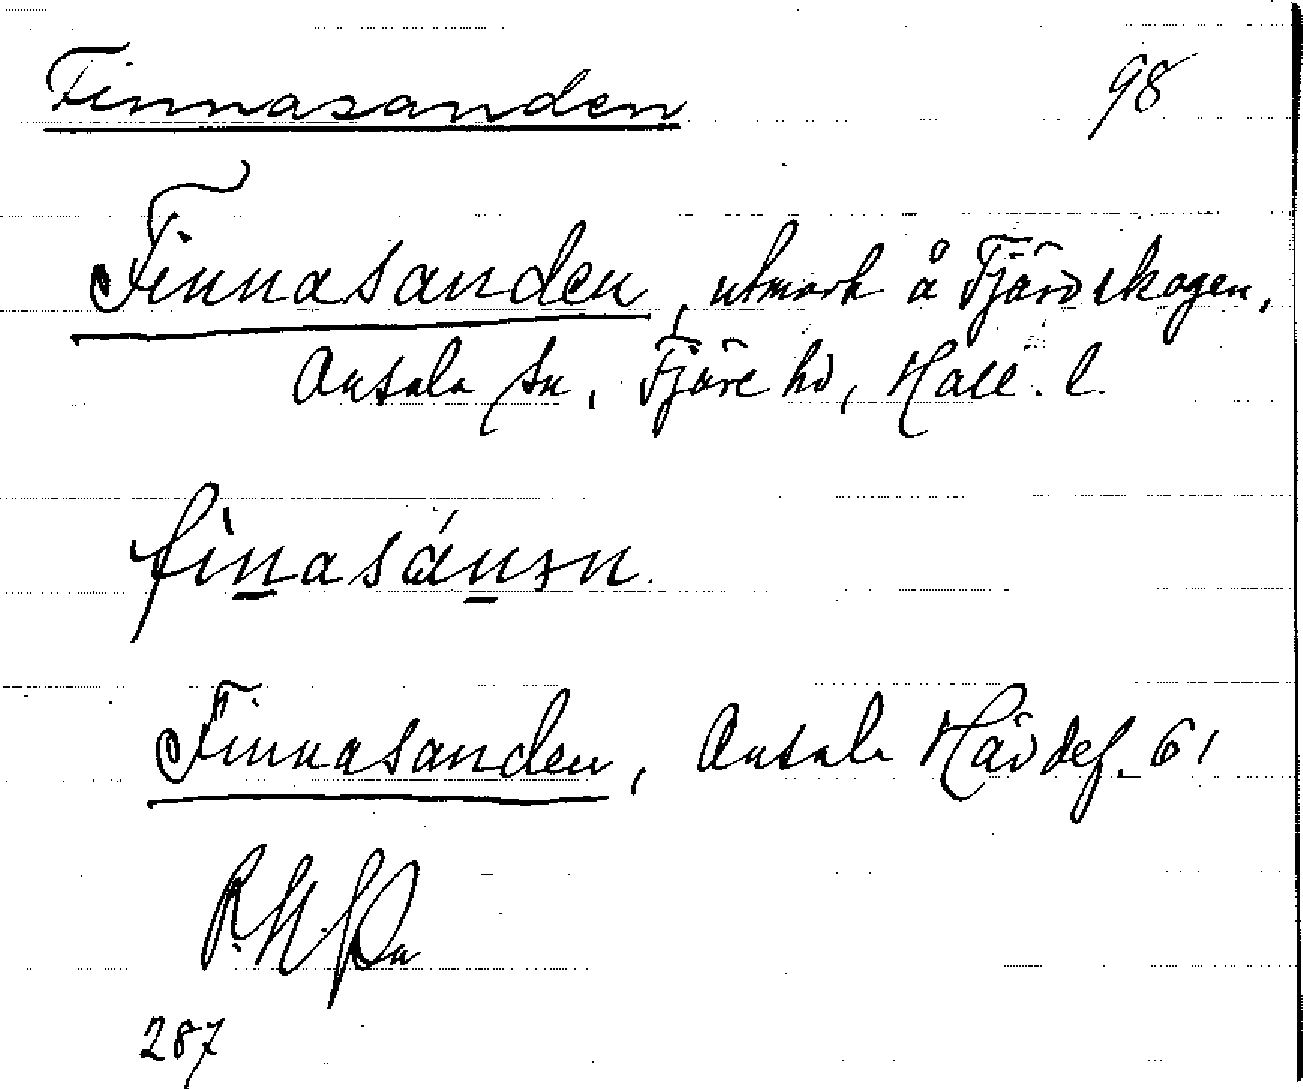 Finnasanden 98
Finnasanden, utmark å Fjärdskogen,
Onsala sn, Fjäre hd, Hall. l.
fìn̲asán̲ən.
Finnasanden, Onsala Hävdef. 61
287